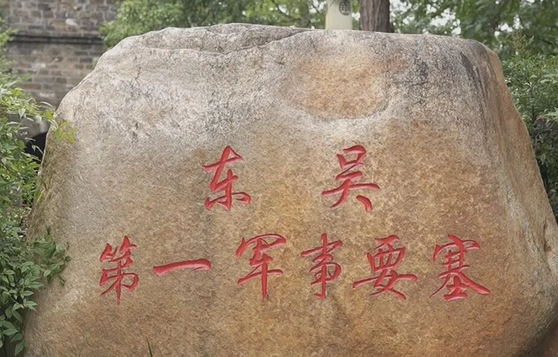 东吴
第一军事要塞